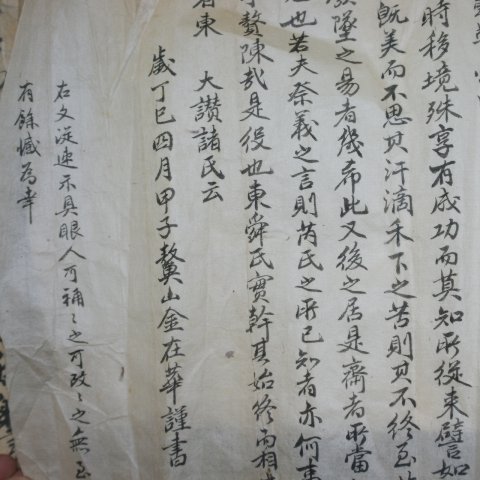 時移境殊享有成功而莫知所從來譬如
旣美而不思其汗滴禾下之苦則其不終至
墜之易者幾希此又後之居是齋者所當
也若夫奈義之言則芮氏之所已知者亦何
贅陳哉是役也東舜氏實幹其始終而相
者東 大讚諸氏云
歲丁巳四月甲子鰲山金在華謹書
右文淀速示具眼人可補〻之可改〻之無至
有餘憾爲幸